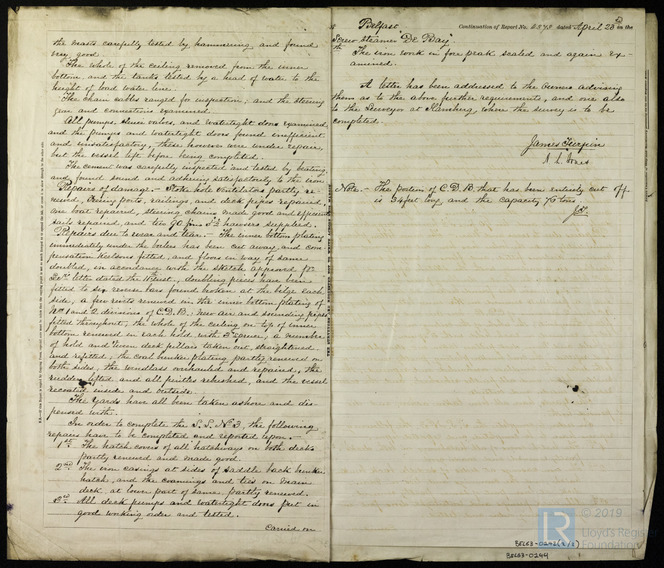 the rivets carefully tested by hammering and found
very good.
The whole of the ceiling removed from the inner
bottom and the tanks tested by a head of water to the
height of load water line.
The chain cables ranged for inspection; and the steering
gear and connections examined.
All pumps, sluice valves, and watertight doors examined,
and the pumps and watertight doors found inefficient
and unsatisfactory, these however were under repair,
but the vessel left before being completed.
The cement was carefully inspected and tested by beating,
and found sound and adhering satisfactorily to the iron.
Repairs of damage. – Stoke hole ventilators partly re-
newed, ports, railings, and deck pipes repaired,
one boat repaired, steering chains made good and
sails repaired, and two 90 fms hawsers supplied.
Repairs due to wear and tear. – The inner bottom plating
immediately under the boilers has been cut away, and com-
pensation keelsons fitted, and floors in way of same
doubled, in accordance with the sketch approved
letter dated the August, doubling pieces have been
fitted to six reverse bars found broken at the bilge each
side, a few rivets renewed in the inner bottom plating of
Nos 1 and 2 divisions of C.D.B.; new air and sounding pipes
fitted throughout, the whole of the ceiling on top of inner
bottom renewed in each hold with a number
of hold and tween deck pillars taken out, straightened
and refitted, the coal bunker plating partly renewed on
both sides, the windlass overhauled and repaired, the
rudder lifted and all pintles rebushed, and the vessel
recoated inside and outside.
The yards have all been taken ashore and dis-
pensed with.
In order to complete the S.S. No 2, the following
repairs have to be completed and reported upon. –
1st The hatch covers of all hatchways on both decks
partly renewed and made good.
2nd The iron casings at sides of saddle back bunker
hatch, and the coamings and ties on main
deck at lower part of same partly renewed.
3rd All deck pumps and watertight doors put in
good working order and tested.
Carried on
Belfast Continuation of Report No. dated April 28th on the
Screw steamer "De Bay"
4th The iron work in fore peak scaled and again ex-
amined.
A letter has been addressed to the Owners advising
them as to the above further requirements, and one also
to the Surveyor at Hamburg, where the survey is to be
completed.
James Turpin
Note. – The portion of C.D.B. that has been entirely cut off
is 34 feet long and the capacity 70 tons.
© 2019
Lloyd's Register
Foundation
BEL63-0244